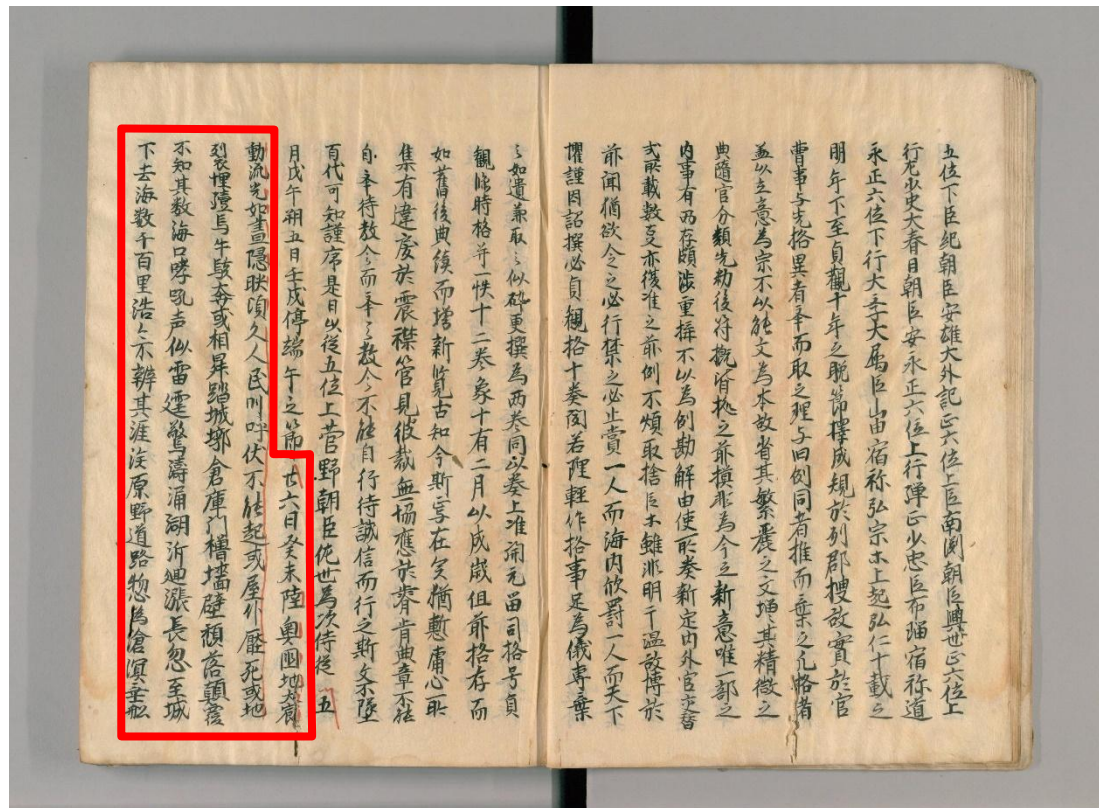 五位下臣紀朝臣安雄大外記正六位上臣南渕朝臣興世正六位上
行左少史大春日朝臣安永正六位上行弾正少忠臣布瑠宿祢道
永正六位下行大宰大属臣山田宿祢弘宗木上起弘仁十載之
明年下至貞觀十年之晩節擇成規於列郡捜故實於官
曹事与先格異者平而取之理与旧例同者推而棄之凡格者
並以立意為宗不以能文為本故省其繁麗之文増其精微之
典隨官分類先勅後符概省桃之前損非為今之新意唯一部之
内事有両存頗渉重挿不以為例勘解由使所奏新定内外官交替
式所載数㕝亦復准之前例不煩取捨臣木雖非明千温故博於
前聞猶欲令之必行禁之必止賞一人而海内欣罸一人而天下
懼謹因詔撰必貞観格十巻閣若陛軽作格事足為儀専棄
之如遺兼取之似砕更撰為両巻同以奏上准開元留司格号貞
観臨時格并一帙十二巻象十有二月以成歳但前格存而
如舊後典績而増新覧古知今斯焉在矣猶慙庸心所
集有違度於震襟管見彼裁無協應於睿旨曲章不能
自奉待教令而奉之教令不能自行待誠信而行之斯文不墜
百代可知謹序是日以從五位上菅野朝臣佐世為次侍従 五
月戊午朔五日壬戌停端午之節廿六日癸未陸奥国地大震
動流光如晝隠映頃久人民叫呼伏不能起或屋仆壓死或地
列衣埋殪馬牛駭奔或相昇踏城墎倉庫門櫓墻壁頽落顛覆
不知其数海口哮吼声似雷霆驚濤涌潮泝廻漲長忽至城
下去海数千百里浩々不辨其涯涘原野道路惣為滄溟乗舩